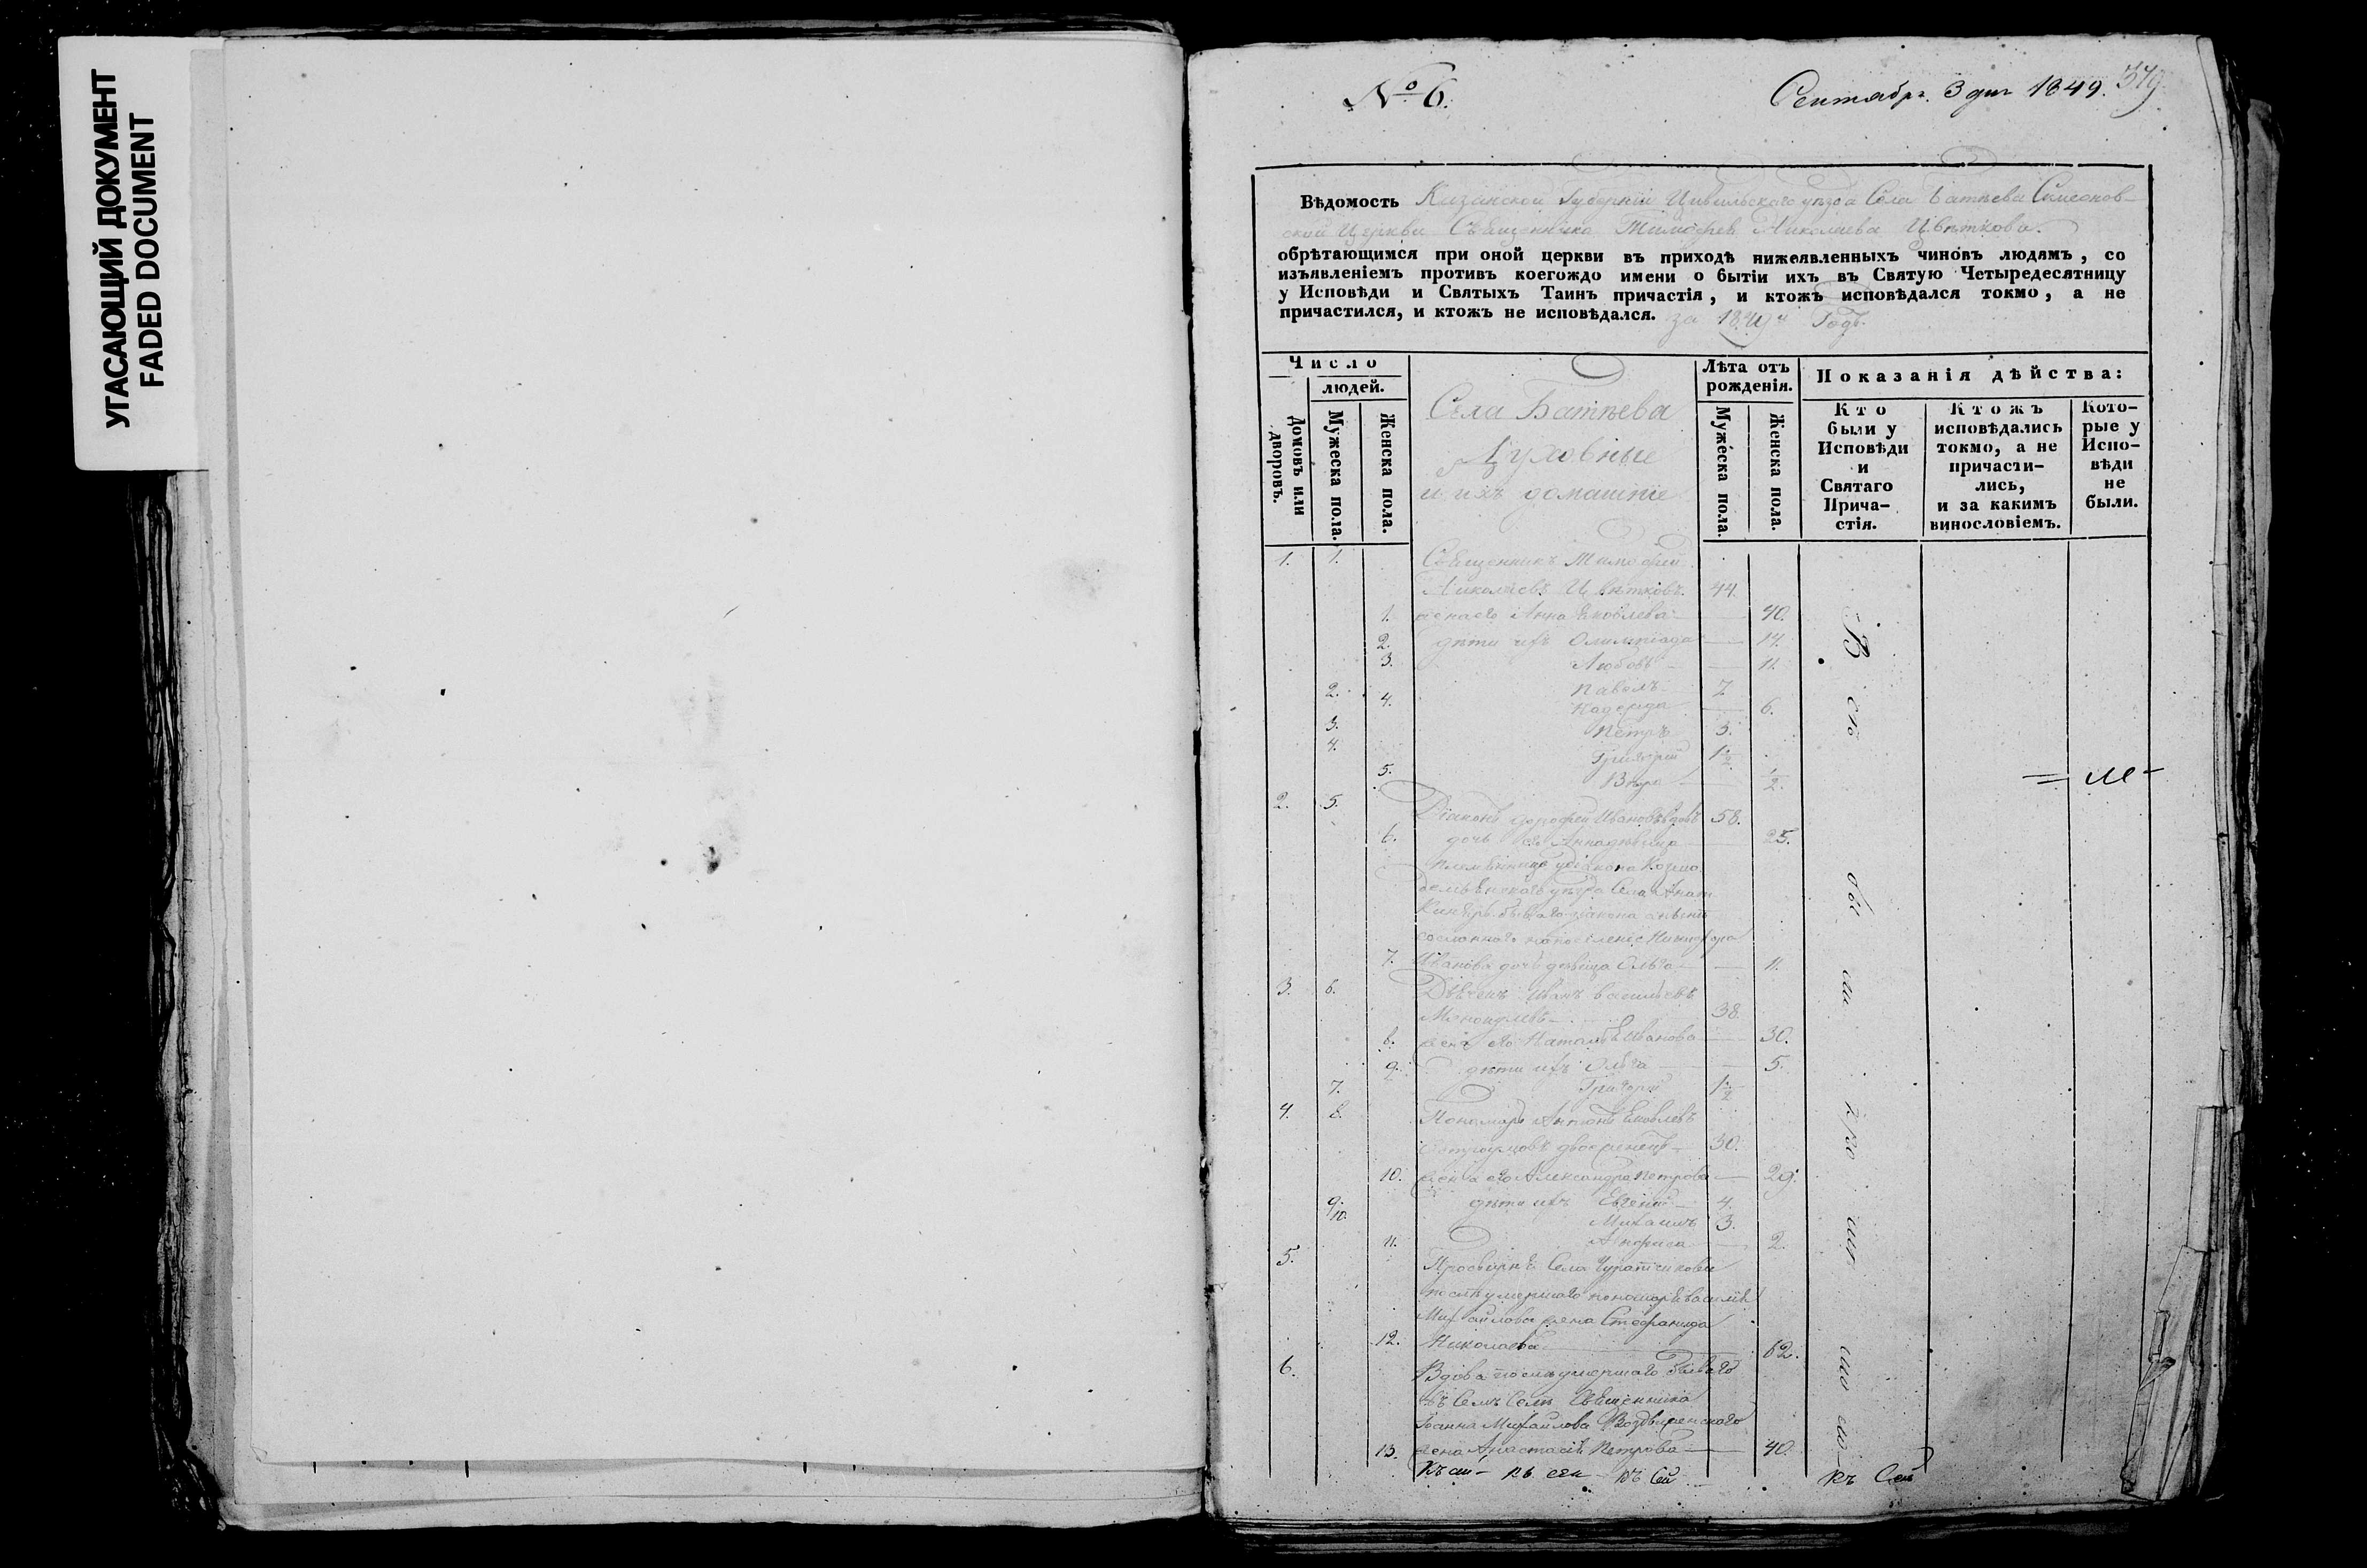 УГАСАЮЩИЙ ДОКУМЕНТ
FADED DOCUMENT
№ 6.
Сентября 3 дня 1849.
379
Вѣдомость Казанской Губерніи Цивильскаго уѣзда Села Батѣева Симеонов-
ской Церкви Священника Тимофея Николаева Цвѣткова.
обрѣтающимся при оной церкви въ приходѣ нижеявленныхъ чиновъ людямъ, со
изъявленіемъ противъ коегождо имени о бытіи ихъ въ Святую Четыредесятницу
у Исповѣди и Святыхъ Таинъ причастія, и ктожъ исповѣдался токмо, а не
причастился, и ктожъ не исповѣдался. за 1849й Годъ.
Число
людей.
Домовъ или дворовъ.
Мужеска пола.
Женска пола.
Села Батѣева
Духовные
и ихъ домашніе
Лѣта отъ
рожденія.
Мужеска пола.
Женска пола.
Показанія дѣйства:
Кто
были у
Исповѣди
и
Святаго
Прича-
стія.
Ктожъ
исповѣдались
токмо, а не
причасти-
лись,
и за какимъ
винословіемъ.
Кото-
рые у
Испо-
вѣди
не
были.
1. 1. Священникъ Тимофей
Николаевъ Цвѣтковъ. 44.
1. жена его Анна Яковлева 40.
2. дѣти ихъ Олимпіада 14.
3. Любовь 11.
2. Павелъ 7
4. Надежда 6.
3. Петръ 3.
4. Григорій 1 1/2
5. Вѣра 1/2.
2. 5. Діаконъ Дорофей Ивановъ вдовъ 58.
6. дочь его Анна дѣвица 25.
племянница діакона Козмо
демьянскаго уѣзда Села
бывшаго діакона
сосланнаго на поселеніе Никифора
7. Иванова дочь дѣвица Ольга 11.
3. 6. Дьячекъ Иванъ Васильевъ
38.
8. жена его Наталья Иванова 30.
9. дѣти ихъ Ольга 5.
7. Григорій 1 1/2
4. 8. Пономарь Антонъ Яковлевъ
30.
10. жена его Александра Петрова 29.
9. дѣти ихъ Евгеній 4.
10. Михаилъ 3.
11. 2.
5. Просвирня Села Чуратчикова
послѣ умершаго пономаря Василія
Михайлова жена Стефанида
12. Николаева 62.
6. Вдова послѣ умершаго бывшаго
въ семъ Селѣ Священника
Іоанна Михайлова Воздвиженскаго
13. жена Анастасія Петрова 40.
Всѣ
бы
ли
къ сей